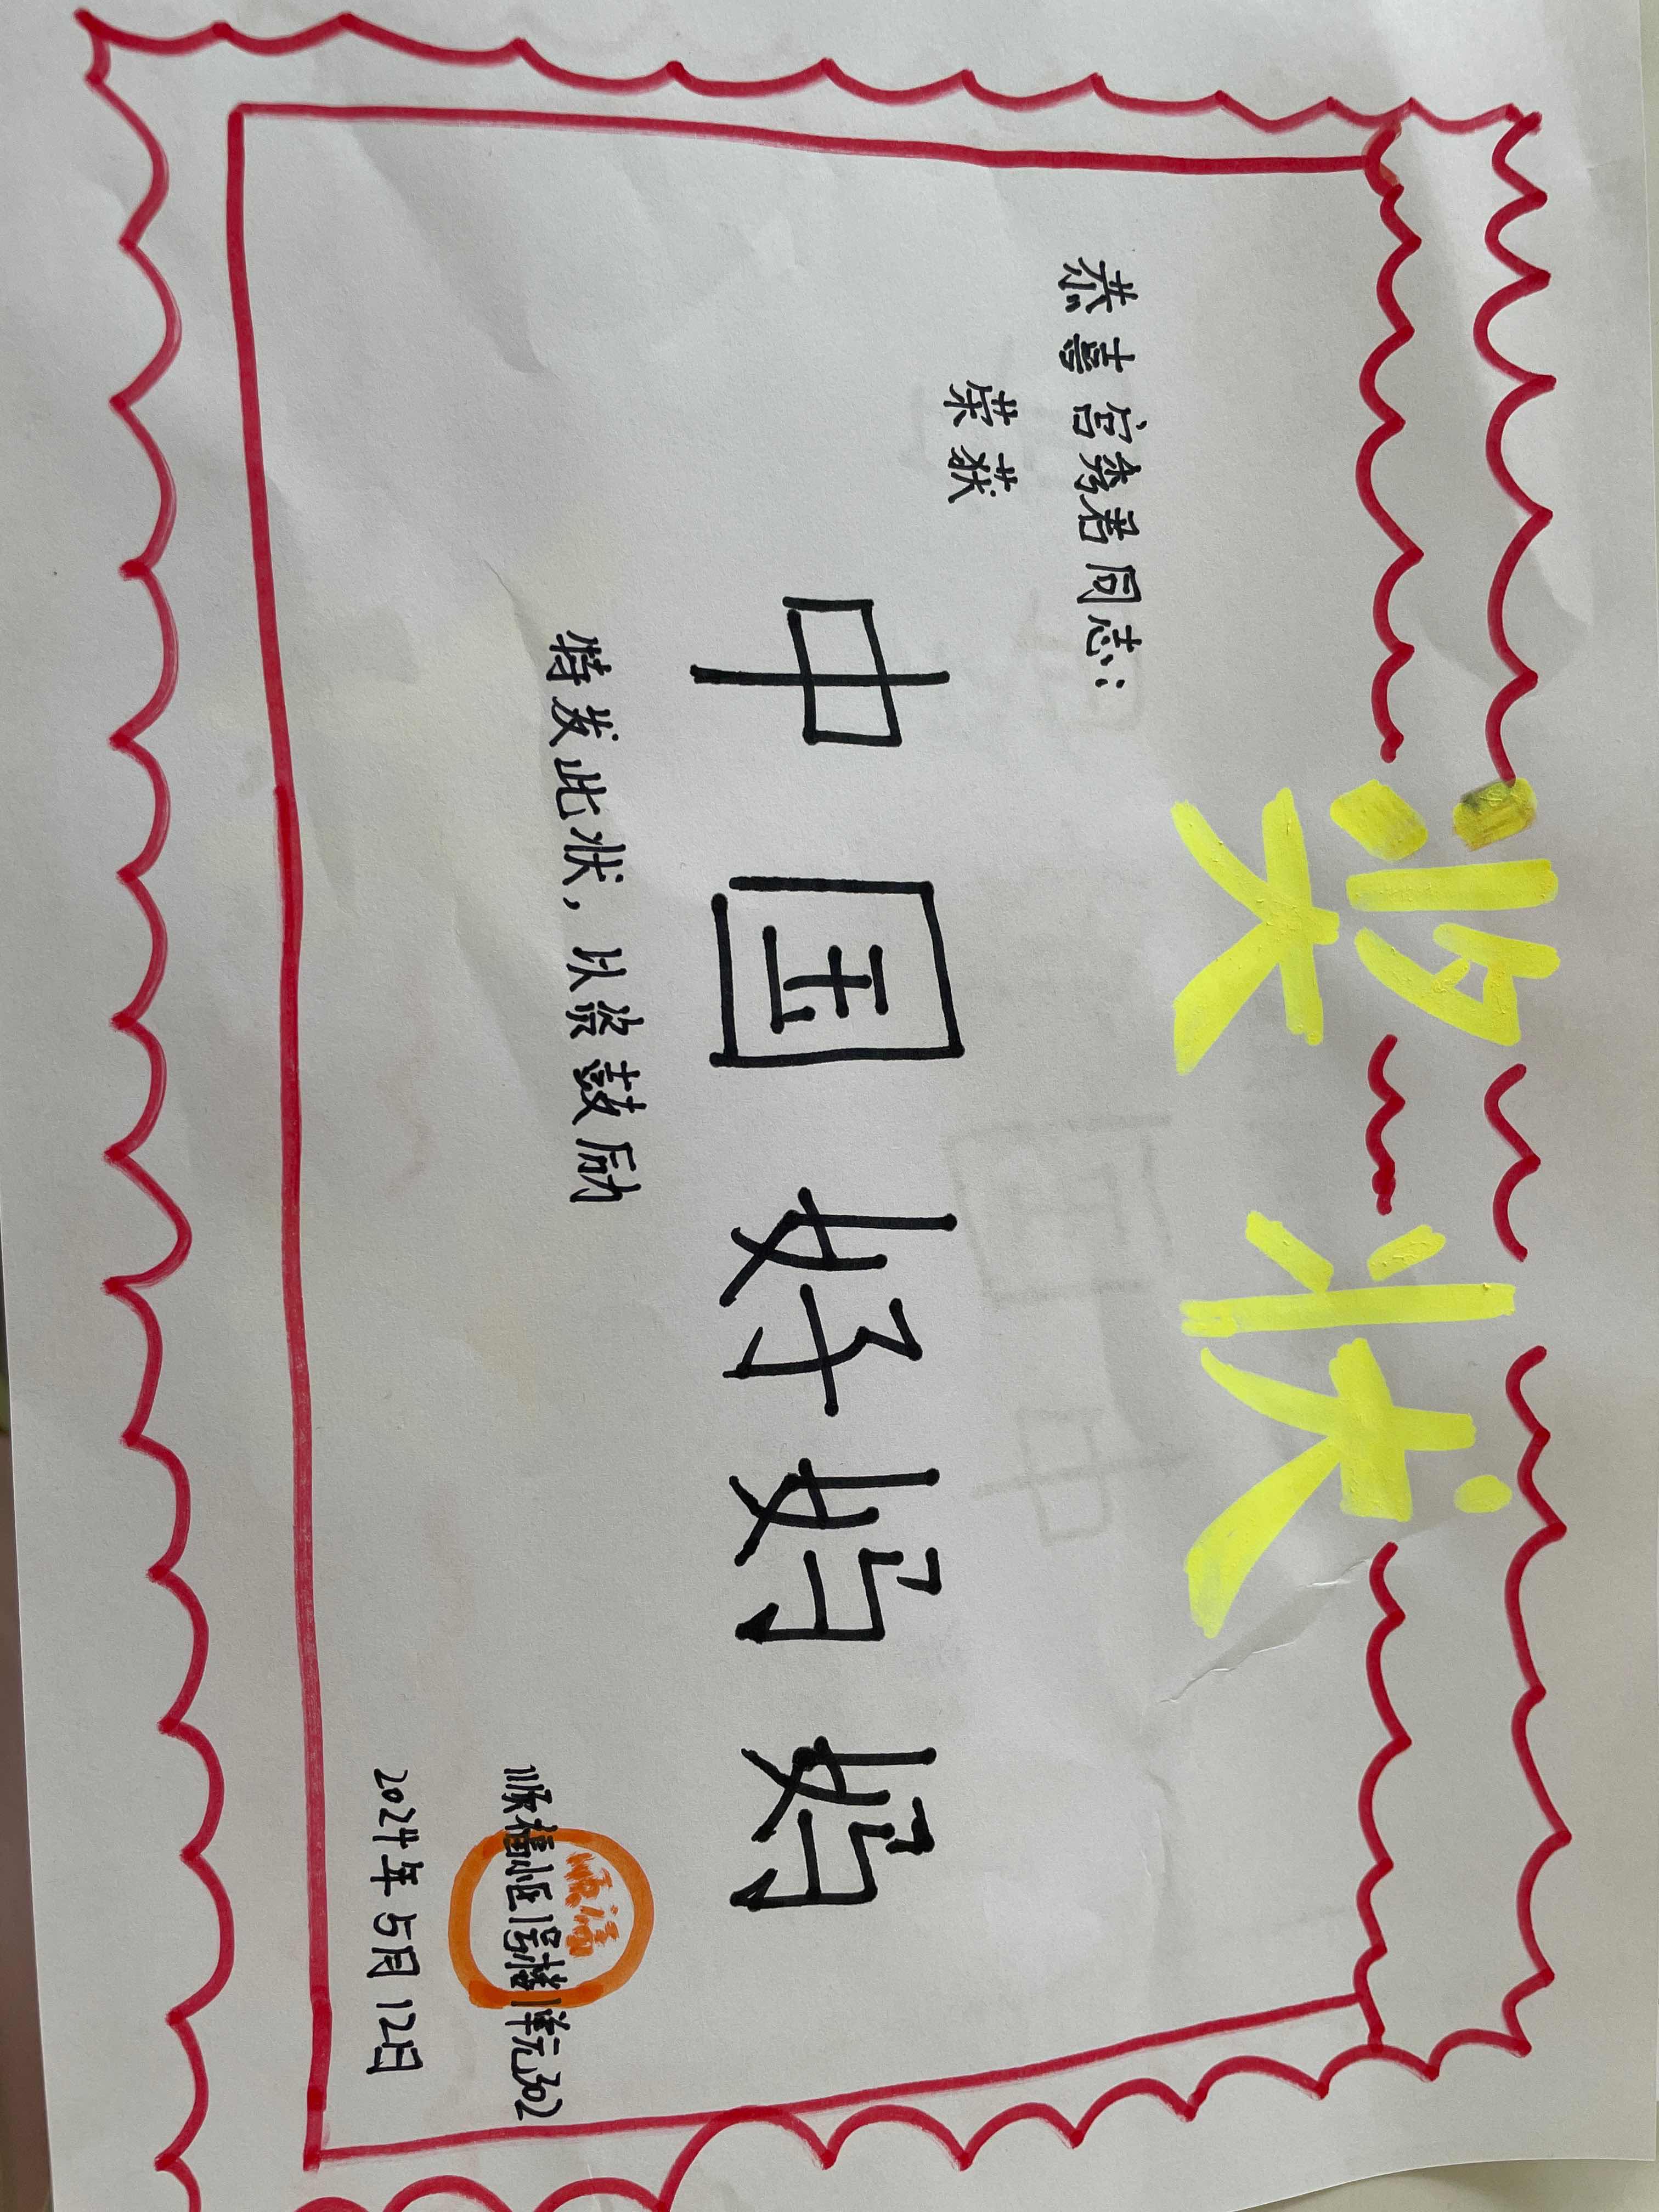 奖状
恭喜宫秀君同志:
荣获
中国好妈妈
特发此状,以资鼓励
顺福
顺福小区1号楼1单元302
2024年5月12日